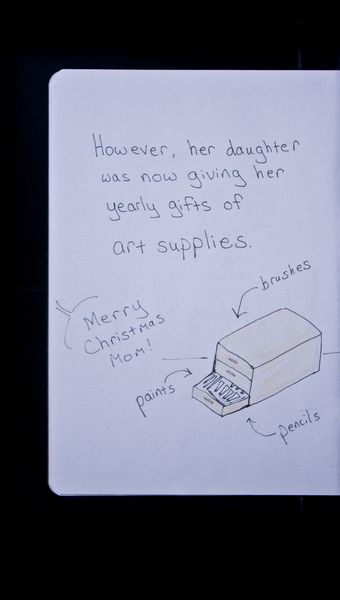 However, her daughter
was now giving her
yearly gifts of
art supplies.
brushes
Merry
Christmas
Mom!
paints
pencils